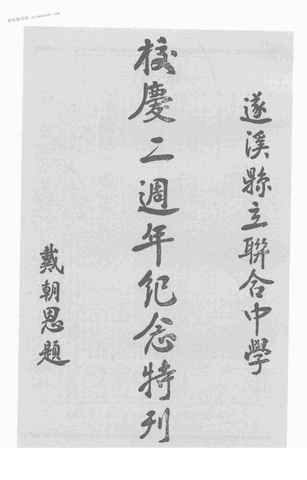 遂溪縣立聯合中學
校慶二週年紀念特刊
戴朝恩題